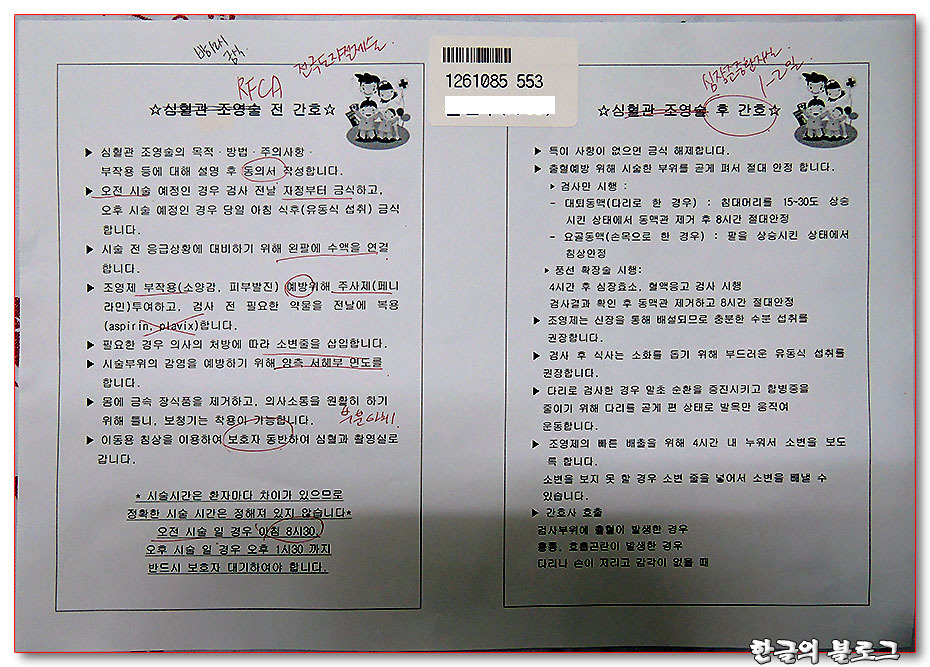 전극도자절제술.
RFCA
☆심혈관 조영술 전 간호☆
▶ 심혈관 조영술의 목적·방법·주의사항·
부작용 등에 대해 설명 후 동의서 작성합니다.
▶ 오전 시술 예정인 경우 검사 전날 자정부터 금식하고,
오후 시술 예정인 경우 당일 아침 식후(유동식 섭취) 금식
합니다.
▶ 시술 전 응급상황에 대비하기 위해 왼팔에 수액을 연결
합니다.
▶ 조영제 부작용(소양감, 피부발진) 예방위해 주사제(페니
라민)투여하고, 검사 전 필요한 약물을 전날에 복용
(aspirin, plavix)합니다.
▶ 필요한 경우 의사의 처방에 따라 소변줄을 삽입합니다.
▶ 시술부위의 감염을 예방하기 위해 양측 서혜부 면도를
합니다.
▶ 몸에 금속 장식품을 제거하고, 의사소통을 원활히 하기
위해 틀니, 보청기는 착용이 가능합니다.
부분마취
▶ 이동용 침상을 이용하여 보호자 동반하여 심혈과 촬영실로
갑니다.
* 시술시간은 환자마다 차이가 있으므로
정확한 시술 시간은 정해져 있지 않습니다*
오전 시술 일 경우 아침 8시30,
오후 시술 일 경우 오후 1시30 까지
반드시 보호자 대기하여야 합니다.
1261085 553
1-2일
☆심혈관 조영술 후 간호☆
▶ 특이 사항이 없으면 금식 해제합니다.
▶ 출혈예방 위해 시술한 부위를 곧게 펴서 절대 안정 합니다.
▶ 검사만 시행 :
- 대퇴동맥(다리로 한 경우) : 침대머리를 15-30도 상승
시킨 상태에서 동맥관 제거 후 8시간 절대안정
- 요골동맥(손목으로 한 경우) : 팔을 상승시킨 상태에서
침상안정
▶ 풍선 확장술 시행:
4시간 후 심장효소, 혈액응고 검사 시행
검사결과 확인 후 동맥관 제거하고 8시간 절대안정
▶ 조영제는 신장을 통해 배설되므로 충분한 수분 섭취를
권장합니다.
▶ 검사 후 식사는 소화를 돕기 위해 부드러운 유동식 섭취를
권장합니다.
▶ 다리로 검사한 경우 말초 순환을 증진시키고 합병증을
줄이기 위해 다리를 곧게 편 상태로 발목만 움직여
운동합니다.
▶ 조영제의 빠른 배출을 위해 4시간 내 누워서 소변을 보도
록 합니다.
소변을 보지 못 할 경우 소변 줄을 넣어서 소변을 빼낼 수
있습니다.
▶ 간호사 호출
검사부위에 출혈이 발생한 경우
흉통, 호흡곤란이 발생한 경우
다리나 손이 저리고 감각이 없을 때
한글의 블로그